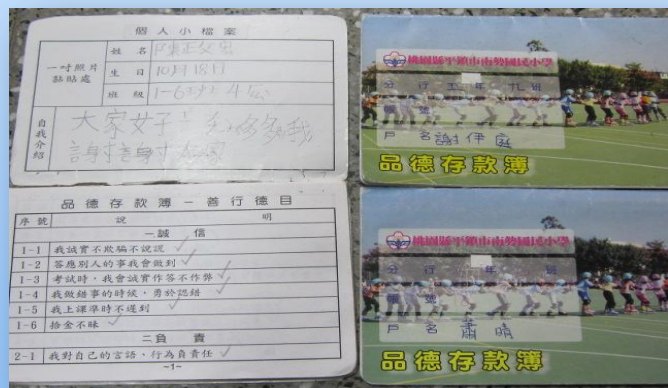 個人小檔案
一吋照片
黏貼處
姓名
生日 10月18日
班級
自我介紹
大家好
謝謝
品德存款簿－善行德目
序號 說明
一誠信
1-1 我誠實不欺騙不說謊
1-2 答應別人的事我會做到
1-3 考試時，我會誠實作答不作弊
1-4 我做錯事的時候，勇於認錯
1-5 我上課準時不遲到
1-6 拾金不昧
二負責
2-1 我對自己的言語，行為負責任
~1~
桃園縣平鎮市南勢國民小學
分行 五年九班
帳號
戶名 謝伊庭
品德存款簿
桃園縣平鎮市南勢國民小學
分行 年 班
帳號
戶名 蕭晴
品德存款簿